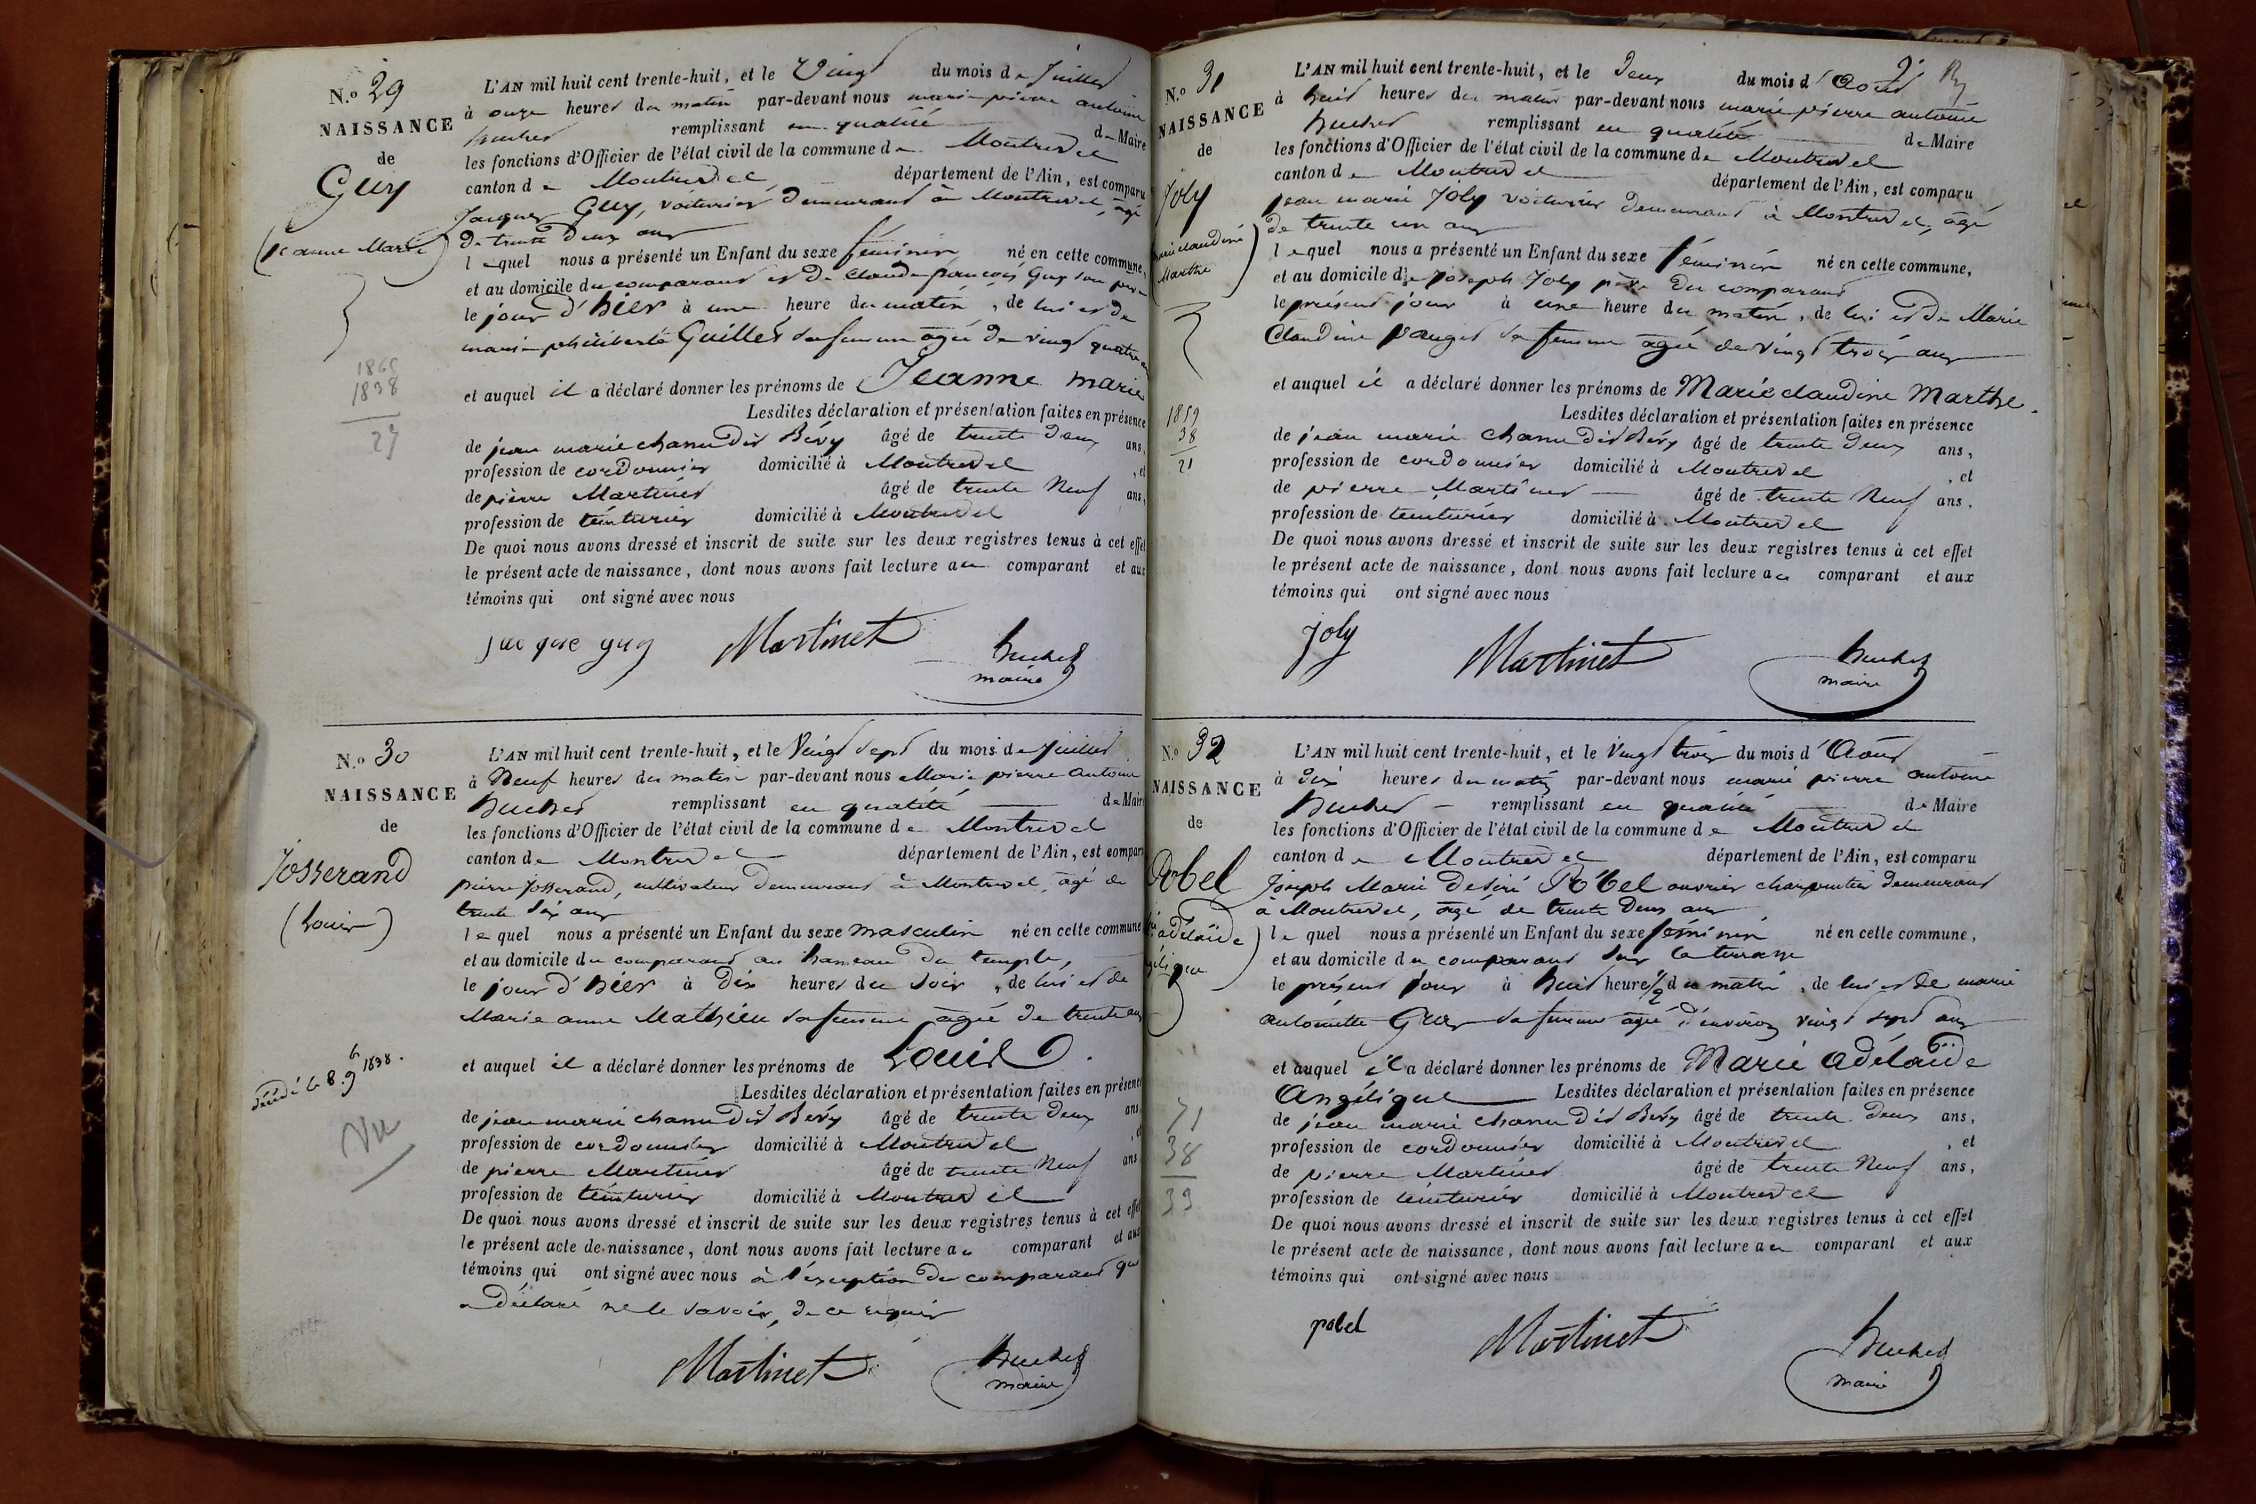 N.o 29
NAISSANCE
de
Guy
(jeanne Marie)
1865
1838
27
L'AN mil huit cent trente-huit, et le Vingt du mois de Juillet
à onze heures du matin par-devant nous marie pierre antoine
huchet remplissant en qualité de Maire
les fonctions d'Officier de l'état civil de la commune de Montrevel
canton de Montrevel département de l'Ain, est comparu
Jacques Guy, voiturier demeurant à Montrevel, âgé
de trente deux ans
lequel nous a présenté un Enfant du sexe féminin né en cette commune,
et au domicile du comparant et de Claude françois Guy son père
le jour d'hier à une heure du matin, de lui et de
marie philiberte Guillet sa femme âgée de vingt quatre
et auquel il a déclaré donner les prénoms de Jeanne marie
Lesdites déclaration et présentation faites en présence
de jean marie chanu dit Bévy âgé de trente deux ans,
profession de cordonnier domicilié à Montrevel, et
de pierre Martinet âgé de trente Neuf ans,
profession de teinturier domicilié à Montrevel
De quoi nous avons dressé et inscrit de suite sur les deux registres tenus à cet effet
le présent acte de naissance, dont nous avons fait lecture au comparant et aux
témoins qui ont signé avec nous
jacque guy Martinet huchet
maire
N.o 30
NAISSANCE
de
Josserand
(Louis)
décédé le 8. 9bre 1838.
Vu
L'AN mil huit cent trente-huit, et le Vingt sept du mois de Juillet
à Neuf heures du matin par-devant nous Marie pierre antoine
huchet remplissant en qualité de Maire
les fonctions d'Officier de l'état civil de la commune de Montrevel
canton de Montrevel département de l'Ain, est comparu
pierre Josserand, cultivateur demeurant à Montrevel, âgé de
trente six ans
lequel nous a présenté un Enfant du sexe masculin né en cette commune
et au domicile du comparant au hameau du temple,
le jour d'hier à Dix heures du soir, de lui et de
Marie anne Mathieu sa femme âgée de trente ans
et auquel il a déclaré donner les prénoms de Louis.
Lesdites déclaration et présentation faites en présence
de jean marie chanu dit Bévy âgé de trente deux ans,
profession de cordonnier domicilié à Montrevel
de pierre Martinet âgé de trente Neuf ans
profession de teinturier domicilié à Montrevel
De quoi nous avons dressé et inscrit de suite sur les deux registres tenus à cet effet
le présent acte de naissance, dont nous avons fait lecture au comparant et aux
témoins qui ont signé avec nous à l'exception du comparant qui
a déclaré ne le savoir, de ce requis
Martinet huchet
maire
N.o 31
NAISSANCE
de
Joly
Marie claudine
Marthe
1859
38
21
L'AN mil huit cent trente-huit, et le Deux du mois d'Août
à huit heures du matin par-devant nous marie pierre antoine
huchet remplissant en qualité de Maire
les fonctions d'Officier de l'état civil de la commune de Montrevel
canton de Montrevel département de l'Ain, est comparu
jean marie Joly voiturier demeurant à Montrevel, âgé
de trente un ans
lequel nous a présenté un Enfant du sexe féminin né en cette commune,
et au domicile de joseph Joly père du comparant
le présent jour à une heure du matin, de lui et de Marie
Claudine Pauget sa femme âgée de vingt trois ans
et auquel il a déclaré donner les prénoms de Marie claudine Marthe.
Lesdites déclaration et présentation faites en présence
de jean marie chanu dit Bévy âgé de trente deux ans,
profession de cordonnier domicilié à Montrevel, et
de pierre Martinet âgé de trente Neuf ans,
profession de teinturier domicilié à Montrevel
De quoi nous avons dressé et inscrit de suite sur les deux registres tenus à cet effet
le présent acte de naissance, dont nous avons fait lecture au comparant et aux
témoins qui ont signé avec nous
Joly Martinet huchet
maire
N.o 32
NAISSANCE
de
Pobel
adelaïde
71
38
33
L'AN mil huit cent trente-huit, et le Vingt trois du mois d'Août
à dix heures du matin par-devant nous marie pierre antoine
huchet remplissant en qualité de Maire
les fonctions d'Officier de l'état civil de la commune de Montrevel
canton de Montrevel département de l'Ain, est comparu
Joseph Marie desiré Pobel ouvrier charpentier demeurant
à Montrevel, âgé de trente deux ans
lequel nous a présenté un Enfant du sexe féminin né en cette commune,
et au domicile du comparant sur la terrasse
le présent jour à huit heures 1/2 du matin, de lui et de marie
antoinette Guy sa femme âgée d'environ vingt sept ans
et auquel il a déclaré donner les prénoms de Marie adélaïde
Angélique Lesdites déclaration et présentation faites en présence
de jean marie chanu dit Bévy âgé de trente deux ans,
profession de cordonnier domicilié à Montrevel, et
de pierre Martinet âgé de trente Neuf ans,
profession de teinturier domicilié à Montrevel
De quoi nous avons dressé et inscrit de suite sur les deux registres tenus à cet effet
le présent acte de naissance, dont nous avons fait lecture au comparant et aux
témoins qui ont signé avec nous
pobel Martinet huchet
maire